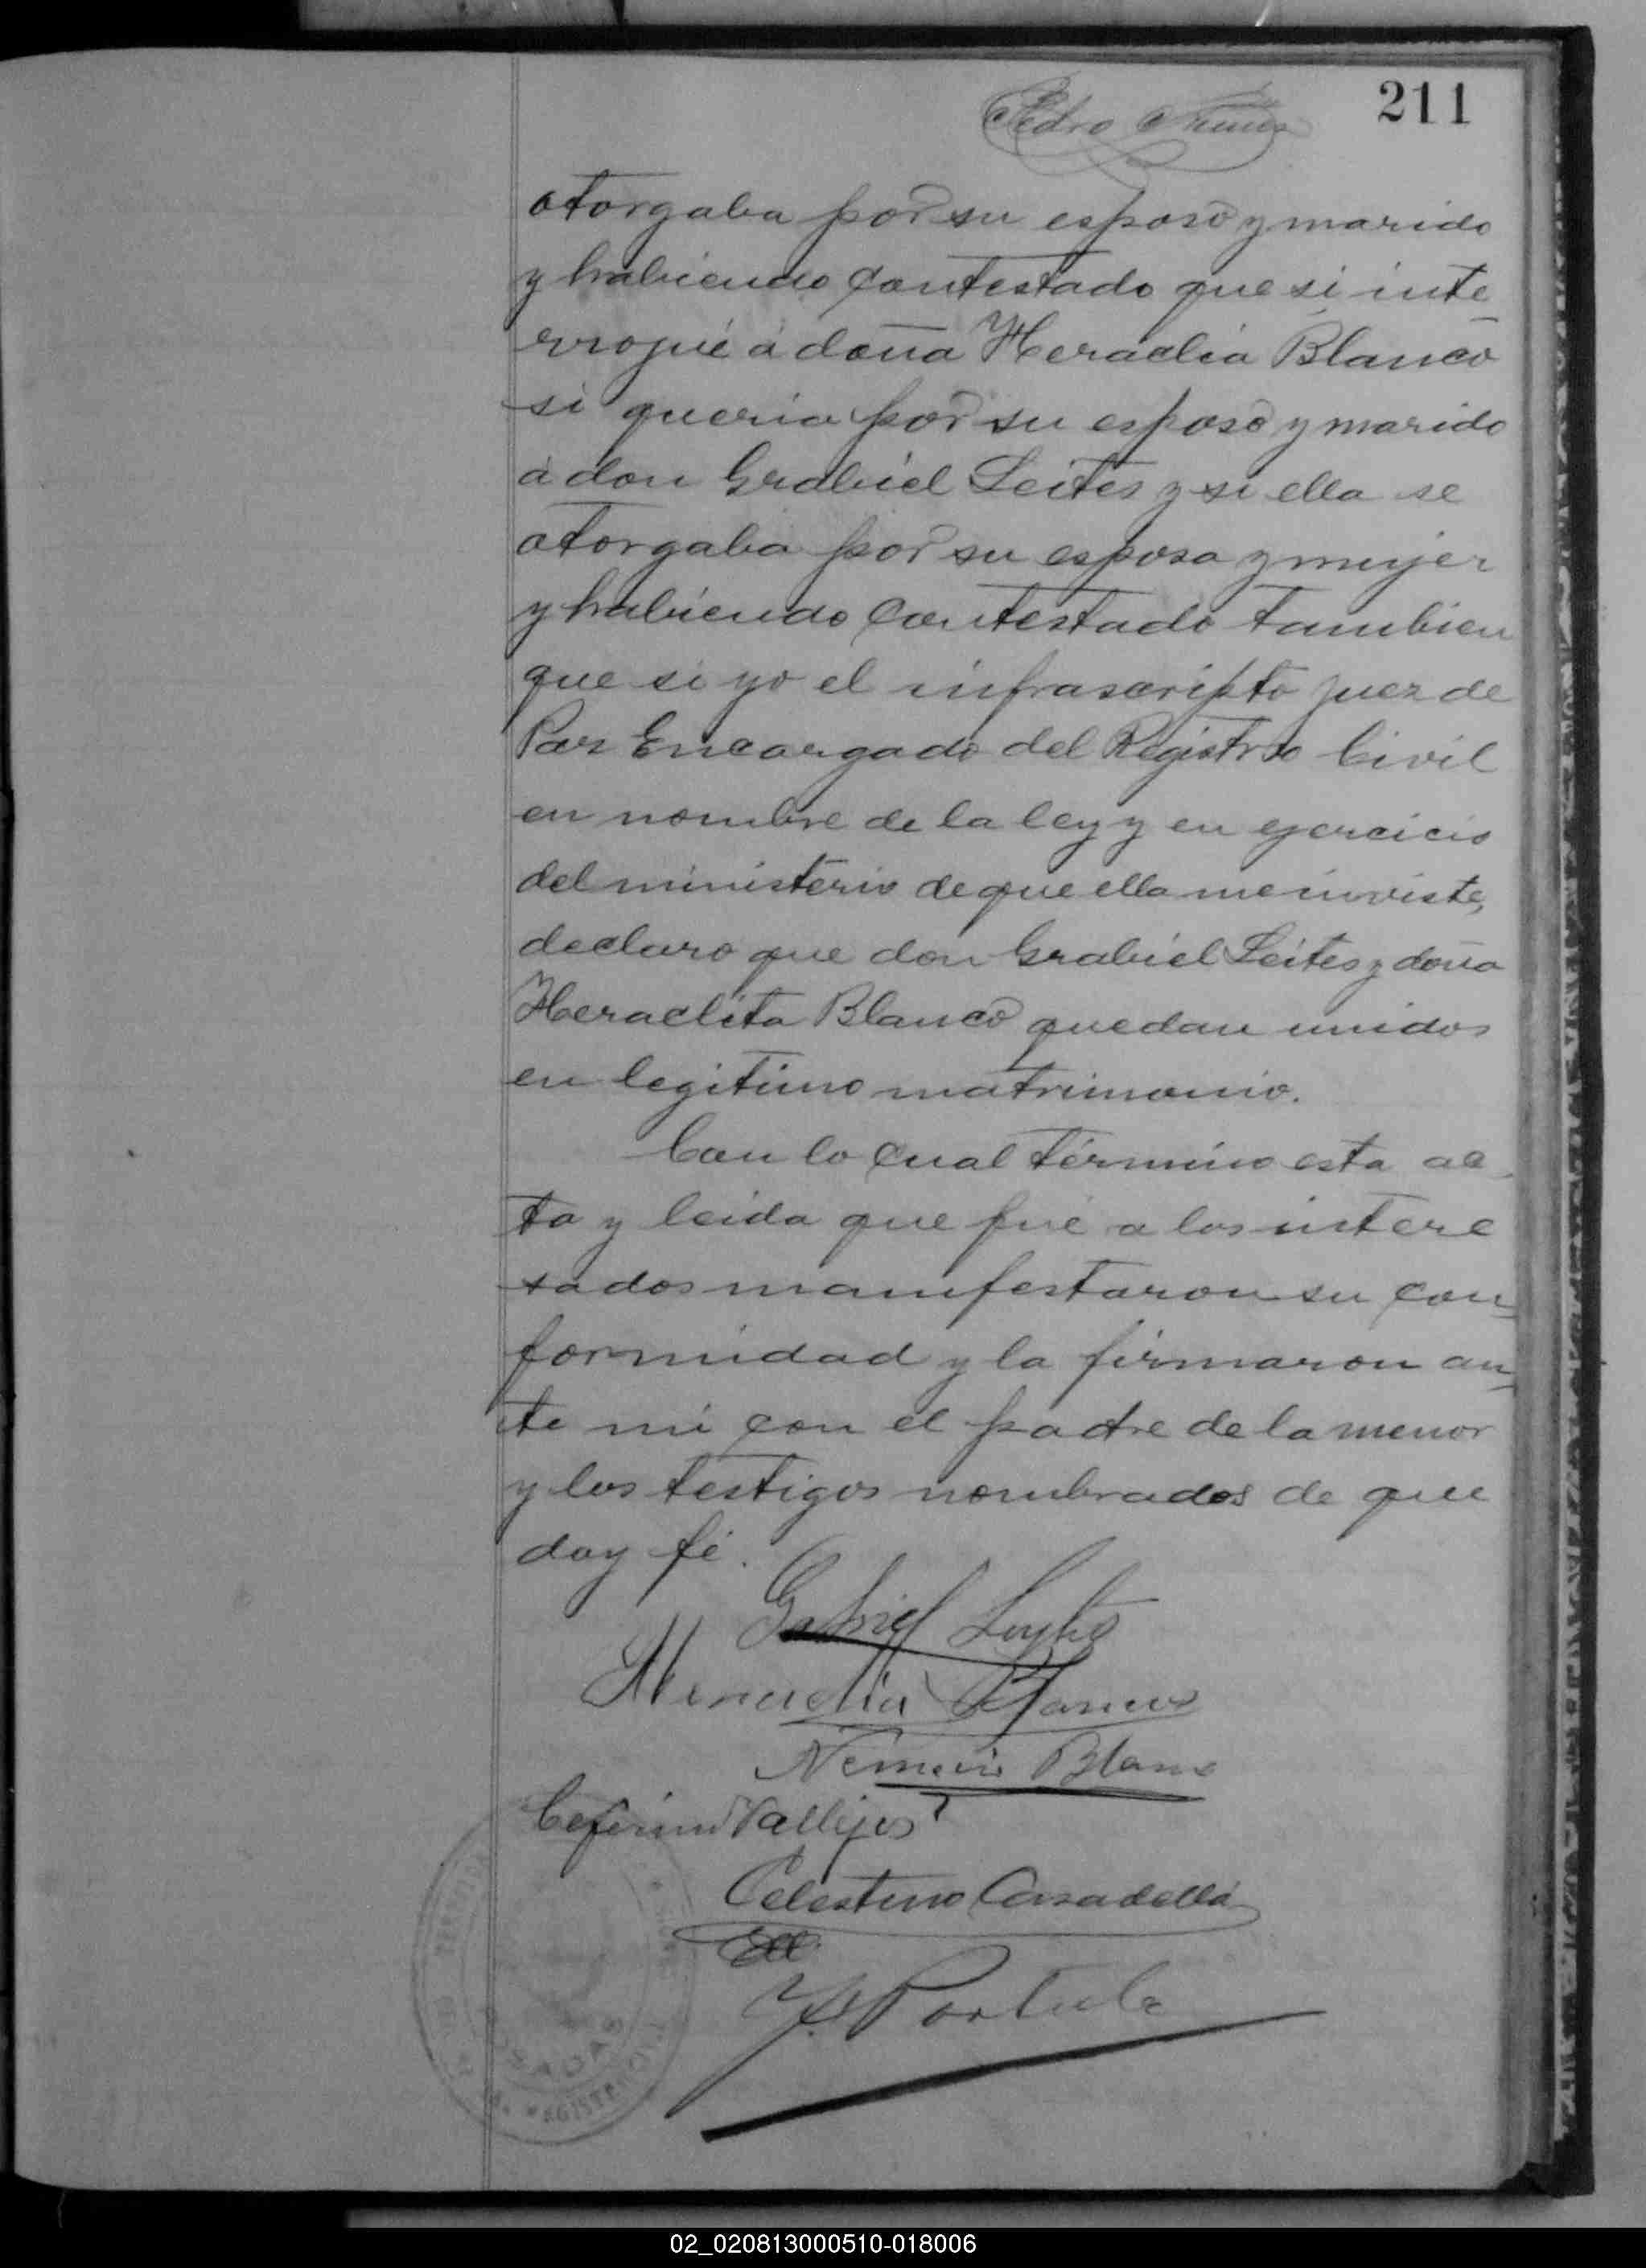 Pedro Nuñez
211
otorgaba por su esposo y marido
y habiendo contestado que si inte
rrogué á doña Heraclia Blanco
si queria por su esposo y marido
á don Grabiel Leites y si ella se
otorgaba por su esposa y mujer
y habiendo contestado tambien
que si yo el infrascripto Juez de
Paz Encargado del Registro Civil
en nombre de la ley y en ejercicio
del ministerio de que ella me inviste,
declaro que don Grabiel Leites y doña
Heraclita Blanco quedan unidos
en legitimo matrimonio.
Con lo cual término esta ac
ta y leida que fué a los intere
sados manifestaron su con
formidad y la firmaron an
te mi con el padre de la menor
y los testigos nombrados de que
doy fé.
Gabriel Leytes
Heraclia Blanco
Nemecio Blanco
Ceferino Vallejos
Celestino Casadellá
Portela
POSADAS
REGISTRO CIVIL
02_020813000510-018006